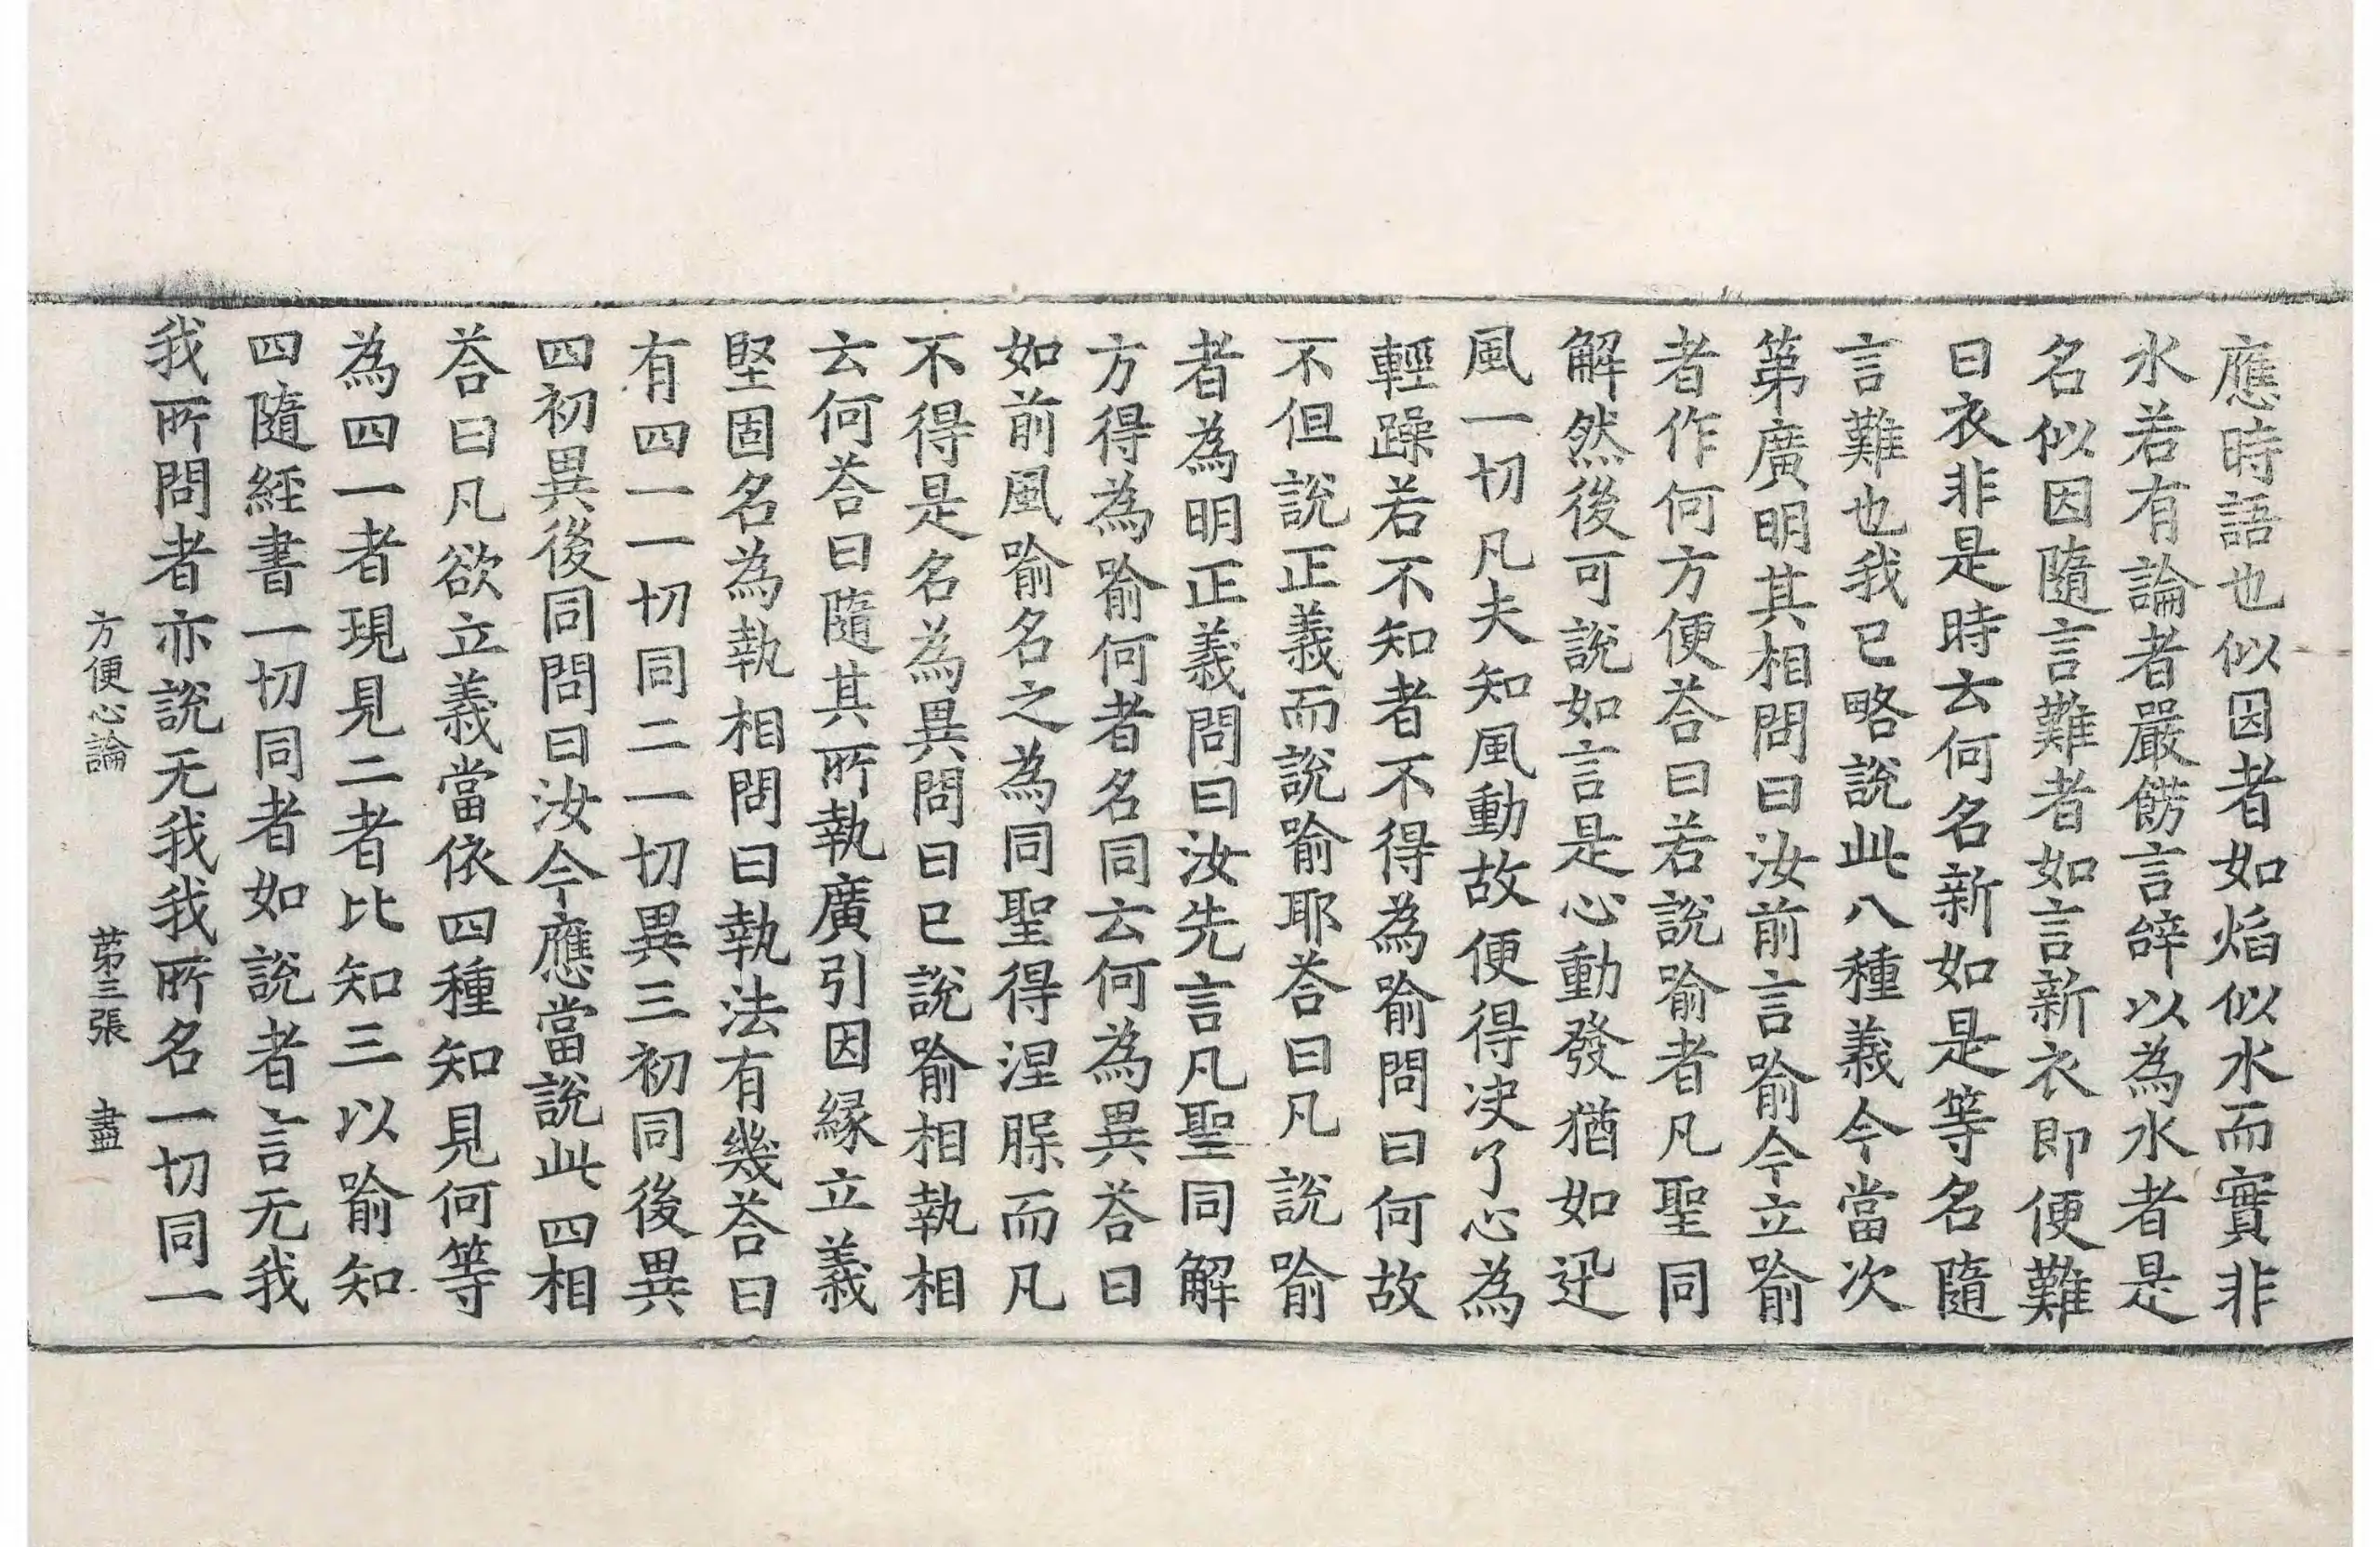 應時語也似因者如焰似水而實非
水若有論者嚴餝言辝以為水者是
名似因隨言難者如言新衣即便難
曰衣非是時云何名新如是等名隨
言難也我已略說此八種義今當次
第廣明其相問曰汝前言喻今立喻
者作何方便荅曰若說喻者凡聖同
解然後可說如言是心動發猶如迅
風一切凡夫知風動故便得決了心為
輕躁若不知者不得為喻問曰何故
不但說正義而說喻耶荅曰凡說喻
者為明正義問曰汝先言凡聖同解
方得為喻何者名同云何為異荅曰
如前風喻名之為同聖得涅槃而凡
不得是名為異問曰已說喻相執相
云何荅曰隨其所執廣引因緣立義
堅固名為執相問曰執法有幾荅曰
有四一一切同二一切異三初同後異
四初異後同問曰汝今應當說此四相
荅曰凡欲立義當依四種知見何等
為四一者現見二者比知三以喻知
四隨經書一切同者如說者言无我
我所問者亦說无我我所名一切同一
方便心論 第三張 盡